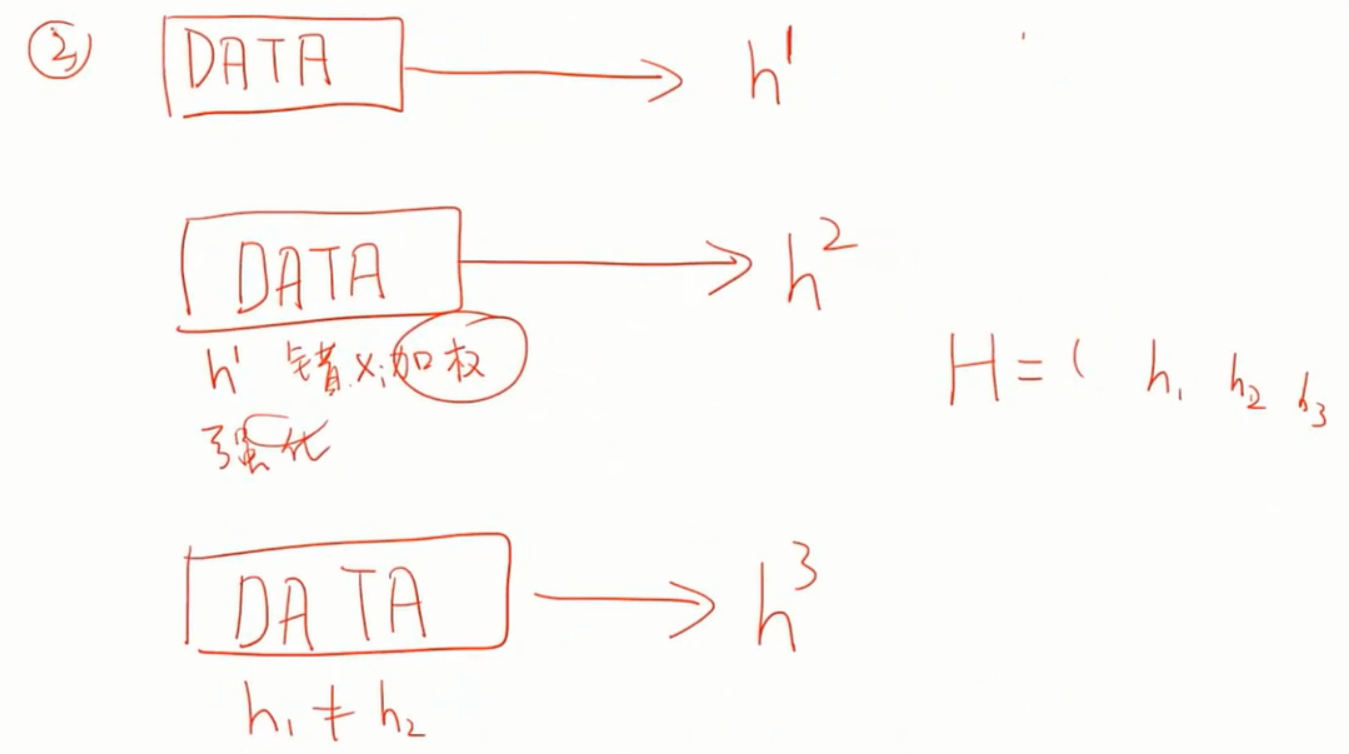 ② DATA → h¹
DATA → h²
h¹ 错 xᵢ 加权
强化
H = ( h₁ h₂ h₃
DATA → h³
h₁ ≠ h₂